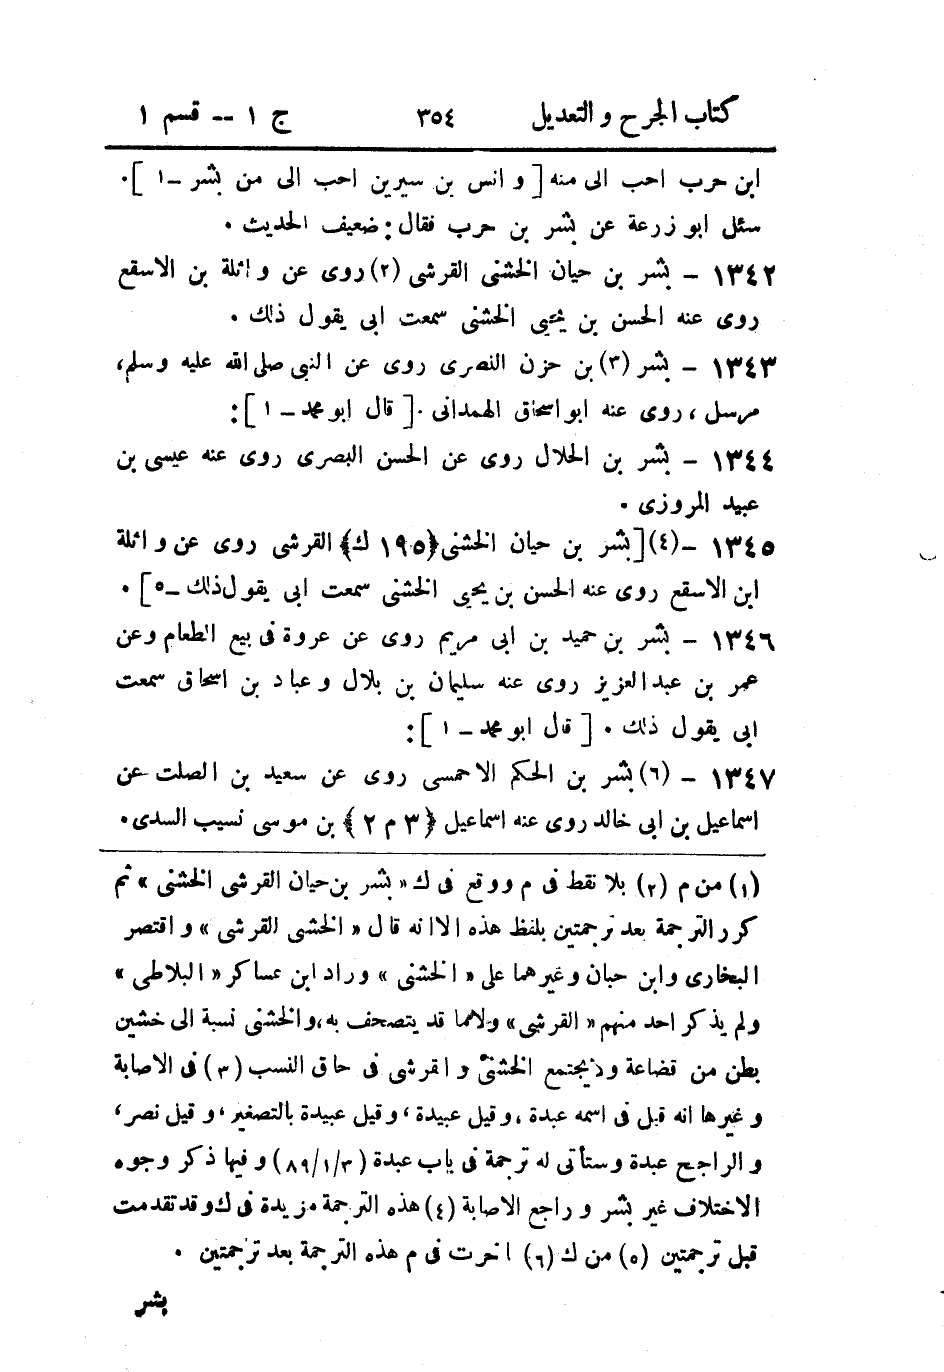 كتاب الجرح والتعديل ٣٥٤ ج ١ -- قسم ١
ابن حرب احب الى منه [ و انس بن سيرين احب الى من بشر ــ ١ ] .
سئل ابو زرعة عن بشر بن حرب فقال : ضعيف الحديث .
١٣٤٢ - بشر بن حيان الخشنى القرشى (٢) روى عن واثلة بن الاسقع
روى عنه الحسن بن يحيى الخشنى سمعت ابى يقول ذلك .
١٣٤٣ - بشر (٣) بن حزن النصرى روى عن النبى صلى الله عليه وسلم ،
مرسل ، روى عنه ابو اسحاق الهمدانى . [ قال ابو محمد ــ ١ ] :
١٣٤٤ - بشر بن الحلال روى عن الحسن البصرى روى عنه عيسى بن
عبيد المروزى .
١٣٤٥ - (٤) [ بشر بن حيان الخشنى ﴿١٩٥ ك﴾ القرشى روى عن واثلة
ابن الاسقع روى عنه الحسن بن يحيى الخشنى سمعت ابى يقول ذلك ــ ٥ ] .
١٣٤٦ - بشر بن حميد بن ابى مريم روى عن عروة فى بيع الطعام وعن
عمر بن عبد العزيز روى عنه سليمان بن بلال وعباد بن اسحاق سمعت
ابى يقول ذلك . [ قال ابو محمد ــ ١ ] :
١٣٤٧ - (٦) بشر بن الحكم الاحمسى روى عن سعيد بن الصلت عن
اسماعيل بن ابى خالد روى عنه اسماعيل ﴿٣ م ٢﴾ بن موسى نسيب السدى .
(١) من م (٢) بلا نقط فى م ووقع فى ك « بشر بن حيان القرشى الخشنى » ثم
كرر الترجمة بعد ترجمتين بلفظ هذه الا انه قال « الخشى القرشى » و اقتصر
البخارى وابن حبان وغيرهما على « الخشنى » وراد ابن عساكر « البلاطى »
ولم يذكر احد منهم « القرشى » وقد يتصحف به ، والخشنى نسبة الى خشين
بطن من قضاعة و يجتمع الخشنى و القرشى فى حاق النسب (٣) فى الاصابة
و غيرها انه قيل فى اسمه عبدة ، وقيل عبيدة ، وقيل عبيدة بالتصغير ، و قيل نصر ،
و الراجح عبدة وستأتى له ترجمة فى باب عبدة (٨٩/١/٣) و فيها ذكر وجوه
الاختلاف غير بشر و راجع الاصابة (٤) هذه الترجمة مزيدة فى ك وقد تقدمت
قبل ترجمتين (٥) من ك (٦) اخرت فى م هذه الترجمة بعد ترجمتين .
بشر